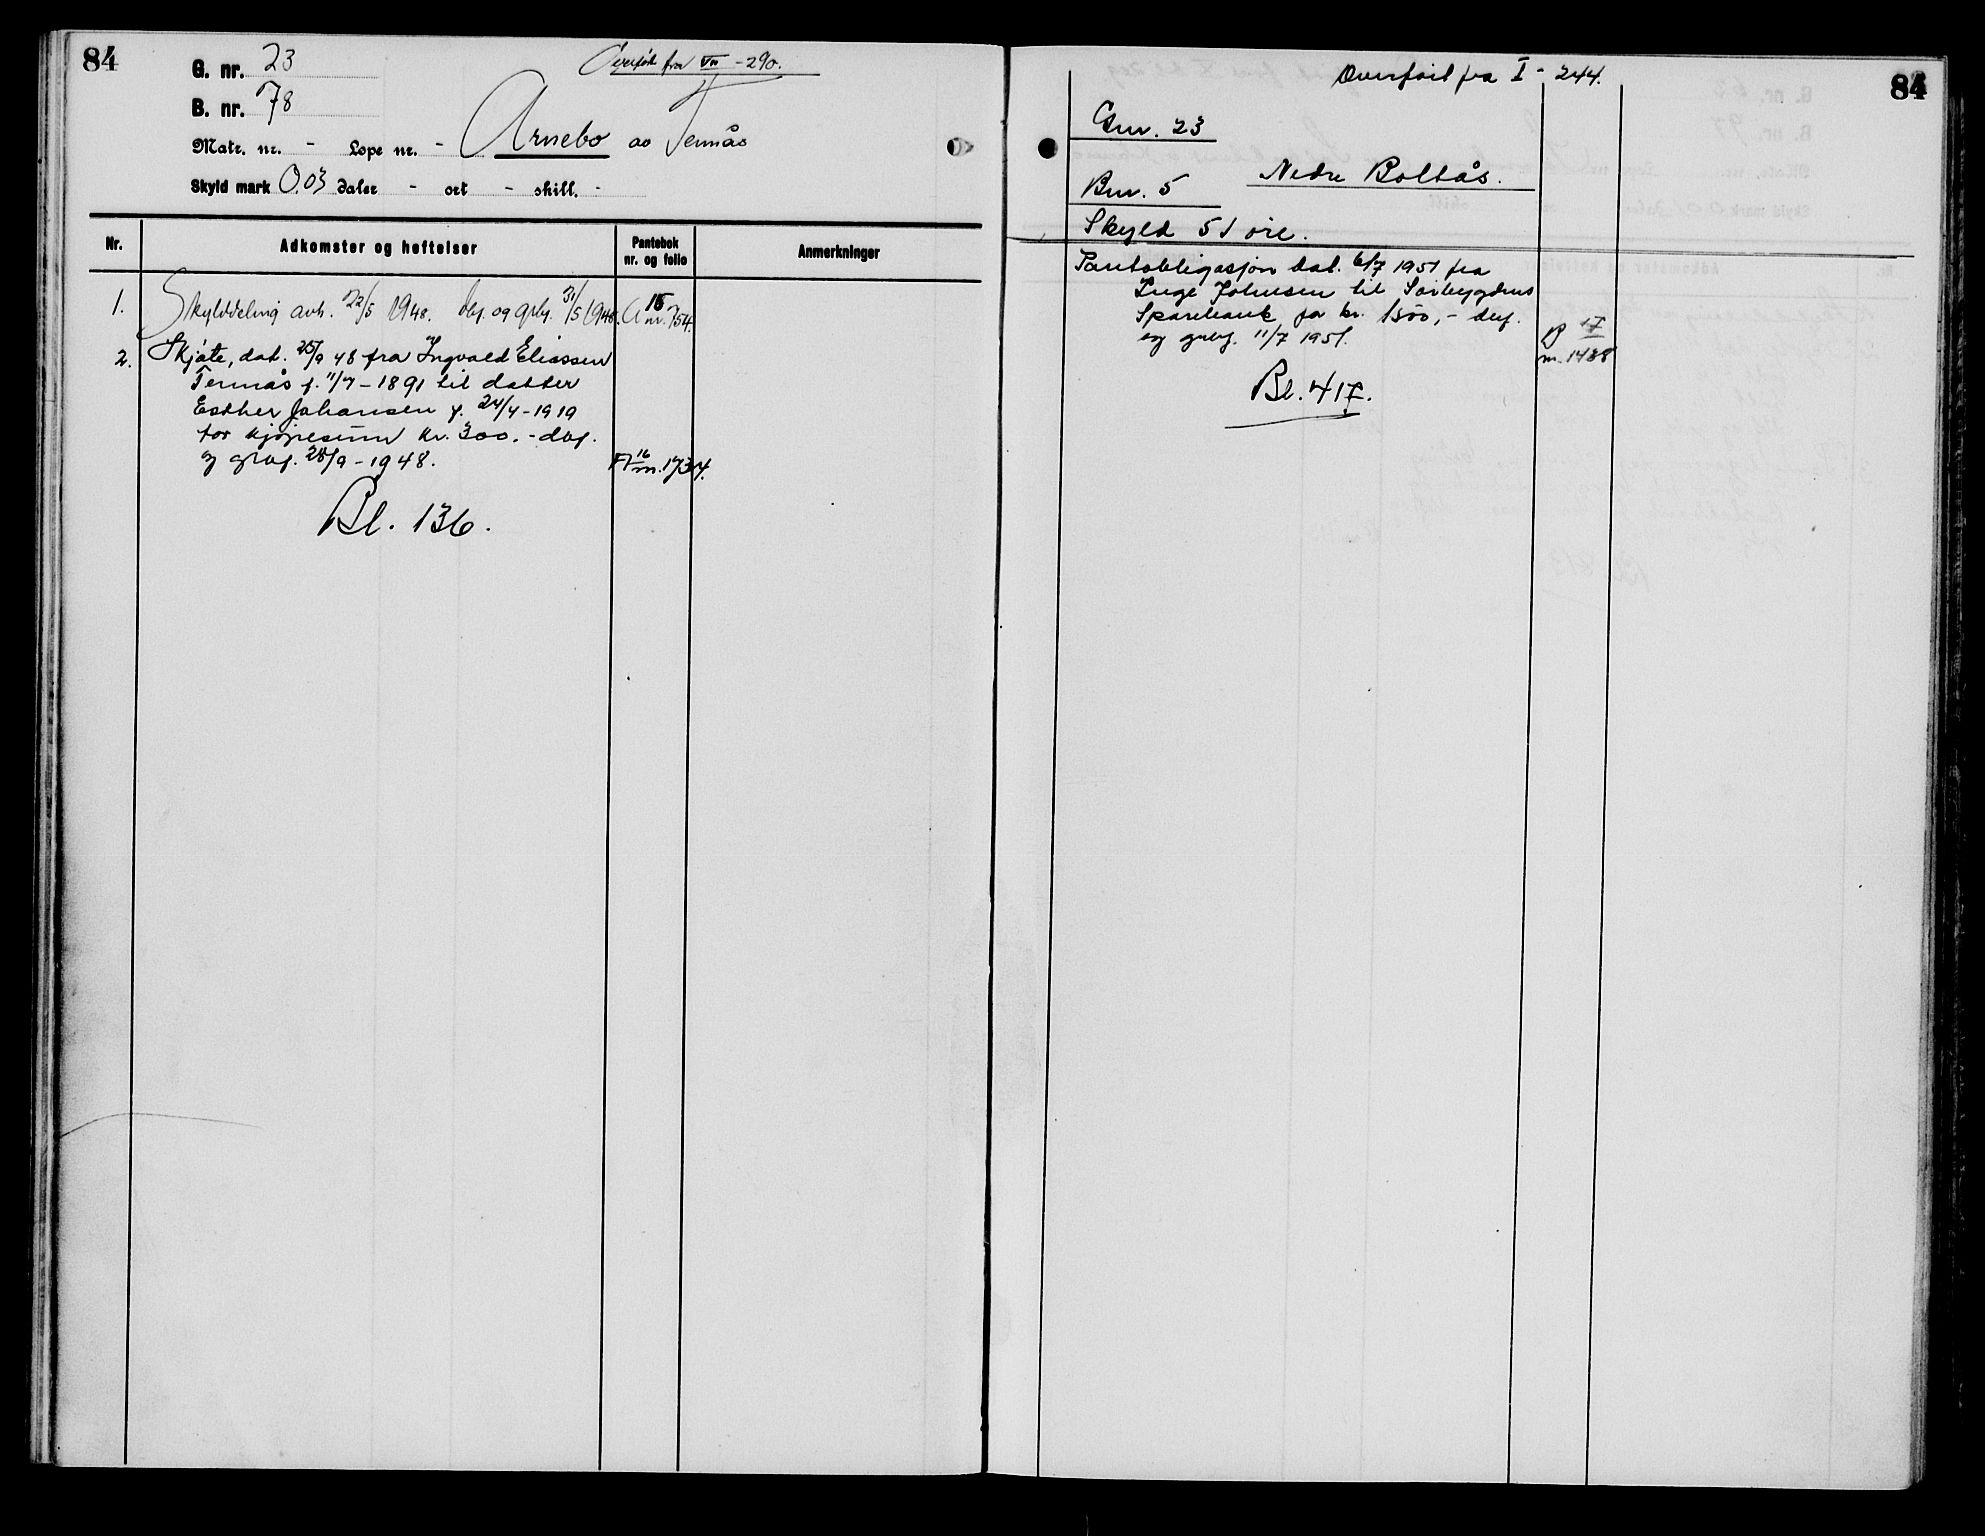 84
G. nr. 23
Overført fra VII - 290.
B. nr. 78
Matr. nr. - Løpe nr. - Arnebo av Ternås
Skyld mark 0.03 daler - ort - skill. -
Nr. Adkomster og heftelser Pantebok nr. og folio Anmerkninger
1. Skylddeling avh. 22/5 1948. dbf. og grbf. 31/5 1948. A 15 nr. 754.
2. Skjøte, dat. 25/9 48 fra Ingvald Eliassen
Ternås f. 11/7 - 1891 til datter
Esther Johansen f. 24/4 - 1919
for kjøpesum kr. 300.- dbf.
og grbf. 28/9 - 1948. A 16 nr. 1734.
Bl. 136.
Overført fra I - 244. 84
Gnr. 23
Nedre Boltås.
Bnr. 5
Skyld 51 øre.
Pantobligasjon dat. 6/7 1951 fra
Inge Johnsen til Sørbygdens
Sparebank for kr. 1500,- dbf.
og grbf. 11/7 1951. B 17
nr. 1488
Bl. 417.